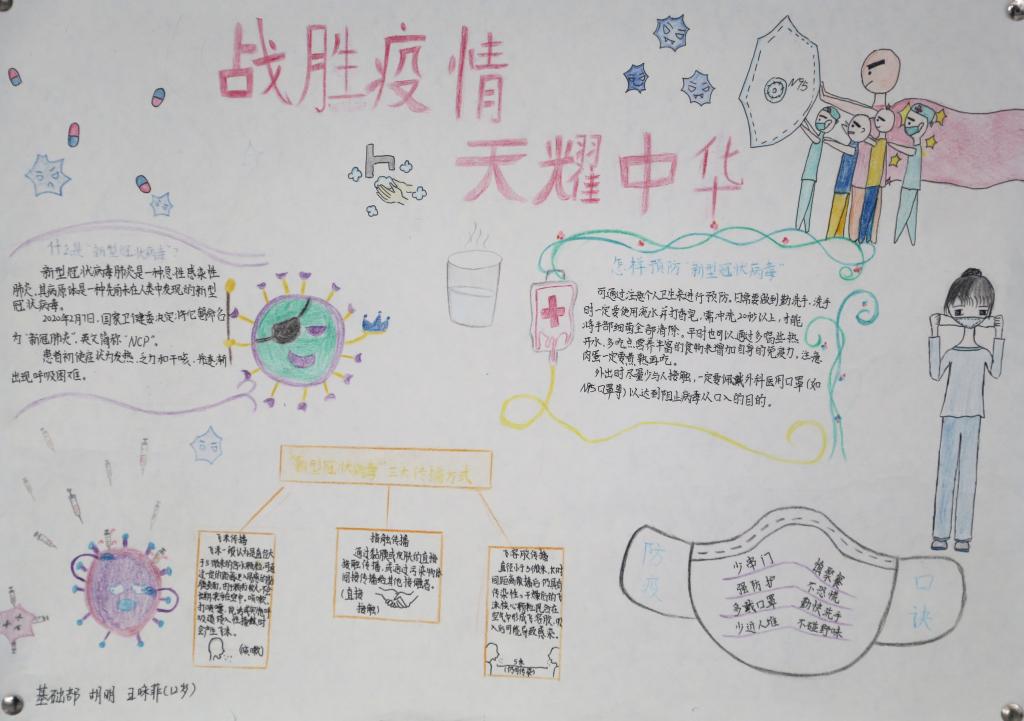 战胜疫情
天耀中华
N95
什么是“新型冠状病毒”？
新型冠状病毒肺炎是一种急性感染性
肺炎,其病原体是一种先前未在人类中发现的新型
冠状病毒。
2020年2月7日,国家卫健委决定:将它命名
为“新冠肺炎”,英文简称“NCP”。
患者初使症状为发热、乏力和干咳,并逐渐
出现呼吸困难。
怎样预防“新型冠状病毒”
可通过注意个人卫生来进行预防。日常要做到勤洗手、洗手
时一定要使用流水并打香皂,需冲洗20秒以上,才能
将手部细菌全部清除。平时也可以通过多喝些热
开水、多吃点营养丰富的食物来增加自身的免疫力,注意
肉蛋一定要煮熟再吃。
外出时尽量少与人接触,一定要佩戴外科医用口罩(如
N95口罩等)以达到阻止病毒从口入的目的。
“新型冠状病毒”三大传播方式
飞沫传播
飞沫一般认为是直径大
于5微米的含水颗粒,可通
过一定的距离进入易感的黏
膜表面。
会产生飞沫。
(咳嗽)
接触传播
通过黏膜或皮肤的直接
接触传播,或通过污染物体
间接传播给其他接触者。
(直接
接触)
飞容胶传播
直径小于5微米,长时
间距离散播后仍具有
传染性。干燥后的飞
沫核心颗粒悬浮在
空气中形成飞容胶,吸
入后可能导致感染。
5米
防疫
少串门
强防护
多戴口罩
少进人堆
慎聚餐
不恐慌
勤快洗手
不碰野味
口诀
基础部 胡明 王咪菲(12岁)